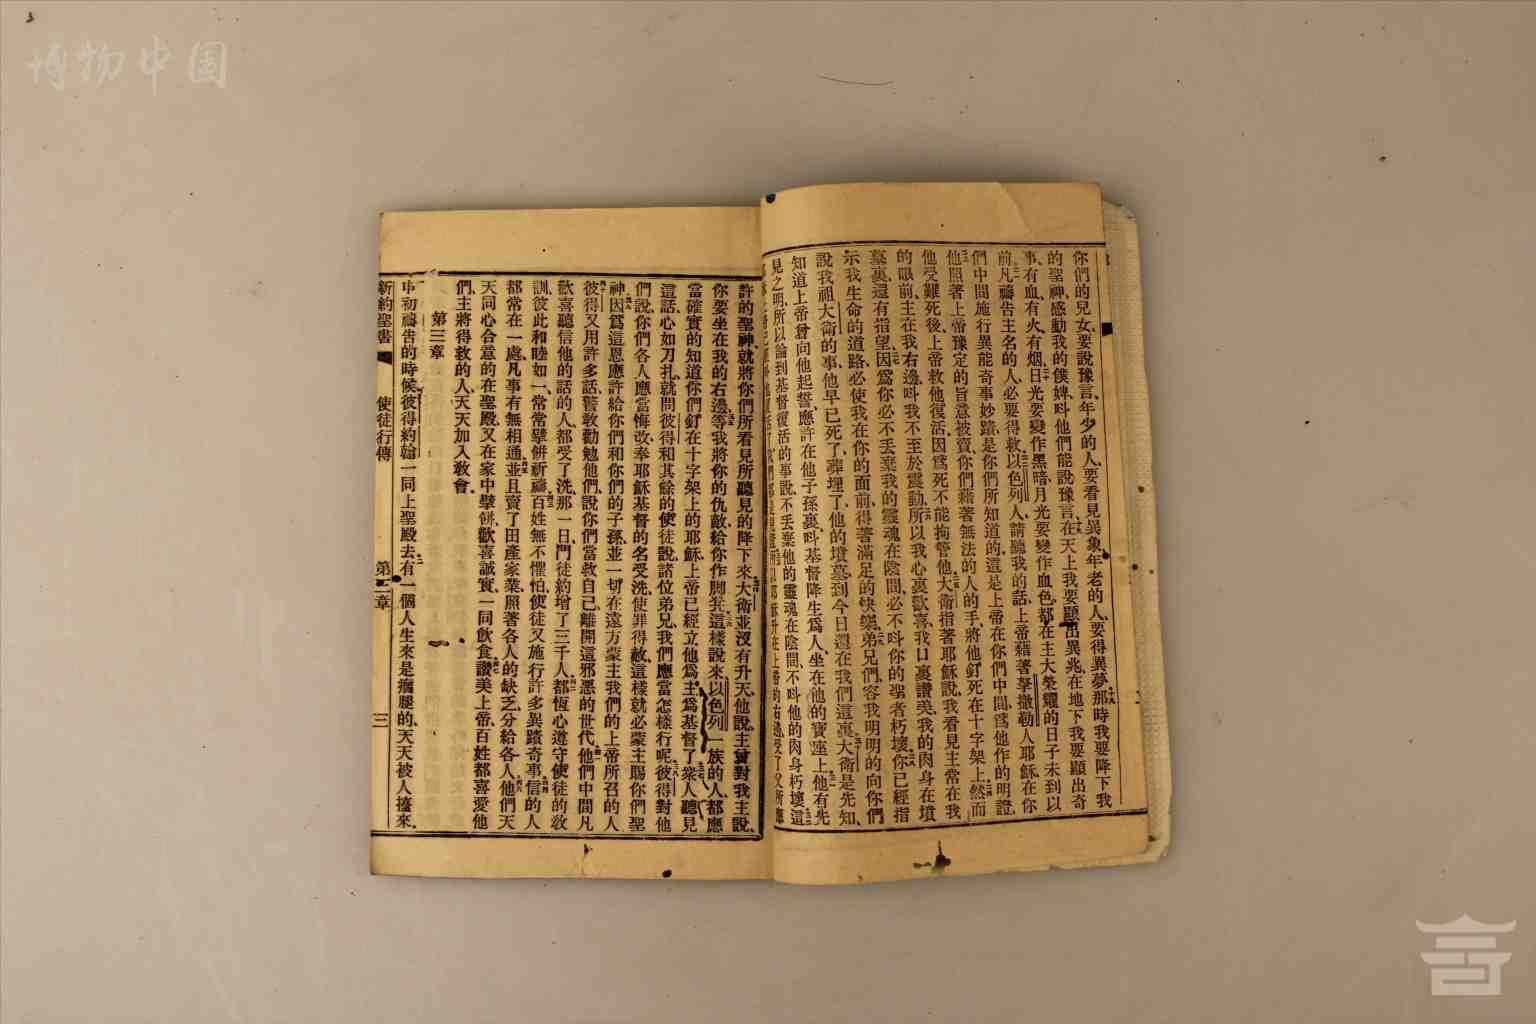 博物中国
你們的兒女、要說豫言、年少的人、要看見異象、年老的人、要得異夢、那時我要降下我
的聖神、感動我的僕婢、呌他們能說豫言、在天上我要顯出異兆、在地下我要顯出奇
事、有血、有火、有烟、日光要變作黑暗、月光要變作血色、都在主大榮耀的日子未到以
前、凡禱告主名的人、必要得救、以色列人、請聽我的話、上帝藉著拏撒勒人耶穌、在你
們中間施行異能奇事妙蹟、是你們所知道的、這是上帝在你們中間、爲他作的明證、
他照著上帝豫定的旨意被賣、你們藉著無法的人的手、將他釘死在十字架上、然而
他受難死後、上帝救他復活、因爲死不能拘管他、大衛指著耶穌說、我看見主常在我
的眼前、主在我右邊、呌我不至於震動、所以我心裏歡喜、我口裏讚美、我的肉身在墳
墓裏、還有指望、因爲你必不丟棄我的靈魂在陰間、必不呌你的聖者朽壞、你已經指
示我生命的道路、必使我在你的面前、得著滿足的快樂、弟兄們、容我明明的向你們
說我祖大衛的事、他早已死了、葬埋了、他的墳墓、到今日還在我們這裏、大衛是先知、
知道上帝曾向他起誓、應許在他子孫裏、呌基督降生爲人、坐在他的寶座上、他有先
見之明、所以論到基督復活的事、說、不丟棄他的靈魂在陰間、不呌他的肉身朽壞、這
許的聖神、就將你們所看見所聽見的降下來、大衛並沒有升天、他說、主曾對我主說、
你要坐在我的右邊、等我將你的仇敵、給你作脚凳、這樣說來、以色列一族的人、都應
當確實的知道、你們釘在十字架上的耶穌、上帝已經立他爲主、爲基督了、衆人聽見
這話、心如刀扎、就問彼得和其餘的使徒說、諸位弟兄、我們應當怎樣行呢、彼得對他
們說、你們各人應當悔改、奉耶穌基督的名受洗、使罪得赦、這樣就必蒙主賜你們聖
神、因爲這恩應許給你們和你們的子孫、並一切在遠方蒙主我們的上帝所召的人、
彼得又用許多話、警敎勸勉他們、說、你們當救自己、離開這邪惡的世代、他們中間凡
歡喜聽信他的話的人、都受了洗、那一日門徒約增了三千人、都恆心遵守使徒的敎
訓、彼此和睦如一、常常擘餅祈禱、百姓無不懼怕、使徒又施行許多異蹟奇事、信的人
都常在一處、凡事有無相通、並且賣了田產家業、照著各人的缺乏、分給各人、他們天
天同心合意的在聖殿、又在家中擘餅、歡喜誠實、一同飲食、讚美上帝、百姓都喜愛他
們、主將得救的人、天天加入敎會、
第三章
申初禱告的時候、彼得約翰一同上聖殿去、有一個人、生來是瘸腿的、天天被人擡來、
新約聖書 使徒行傳 第二章 三